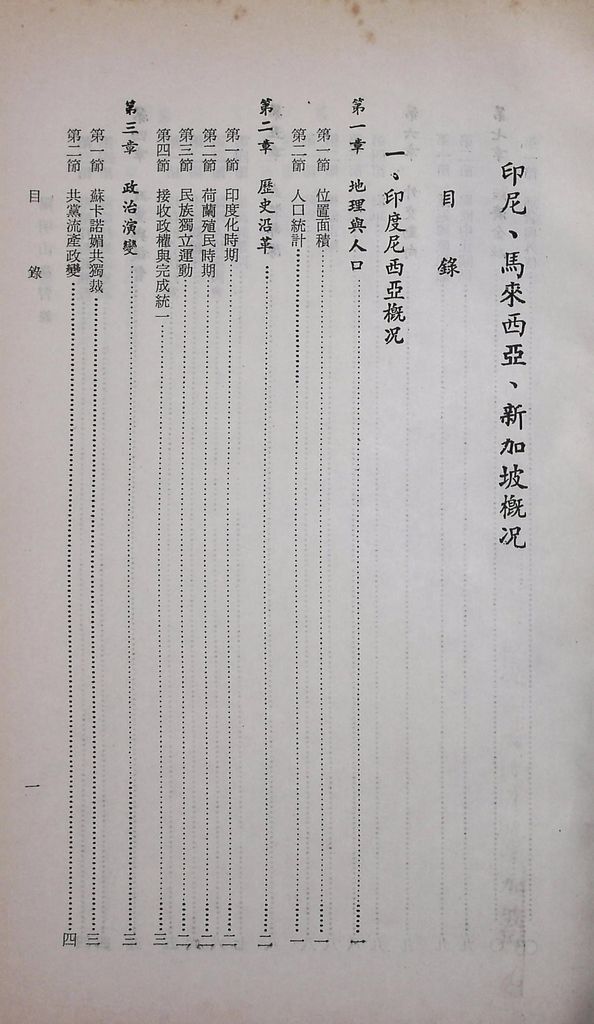 印尼、馬來西亞、新加坡概況
目錄
一、印度尼西亞概況
第一章 地理與人口……一
第一節 位置面積……一
第二節 人口統計……一
第二章 歷史沿革……二
第一節 印度化時期……二
第二節 荷蘭殖民時期……二
第三節 民族獨立運動……二
第四節 接收政權與完成統一……三
第三章 政治演變……三
第一節 蘇卡諾媚共獨裁……三
第二節 共黨流產政變……四
目錄
一